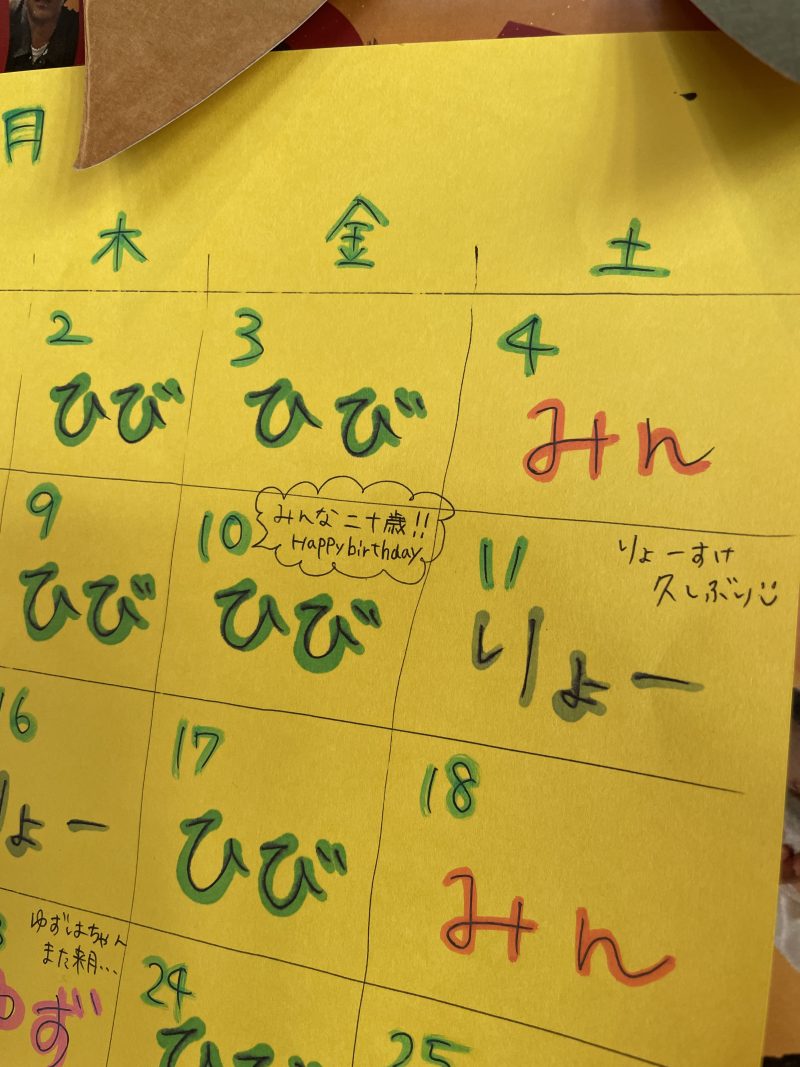 月
木 金 土
2 3 4
ひび ひび みん
みんな二十歳!!
Happy birthday
9 10 11
りょーすけ
久しぶり
ひび ひび りょー
16 17 18
りょー ひび みん
ゆずはちゃん
また来月...
24 25
ゆず ひび